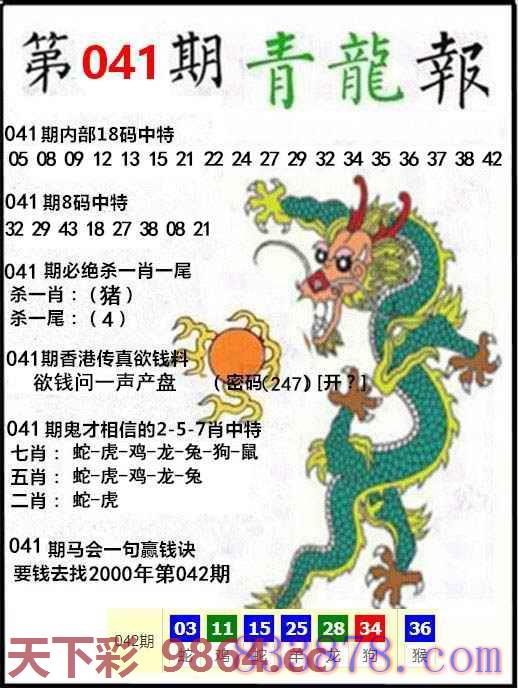 第041期青龍報
041期内部18码中特
05 08 09 12 13 15 21 22 24 27 29 32 34 35 36 37 38 42
041期8码中特
32 29 43 18 27 38 08 21
041 期必绝杀一肖一尾
杀一肖：（猪）
杀一尾：（4）
041期香港传真欲钱料
欲钱问一声产盘 （密码(247)[开？]
041期鬼才相信的2-5-7肖中特
七肖： 蛇-虎-鸡-龙-兔-狗-鼠
五肖： 蛇-虎-鸡-龙-兔
二肖： 蛇-虎
041期马会一句赢钱诀
要钱去找2000年第042期
042期 03 11 15 25 28 34 36
蛇 鸡 蛇 羊 龙 狗 猴
天下彩 9864.cc